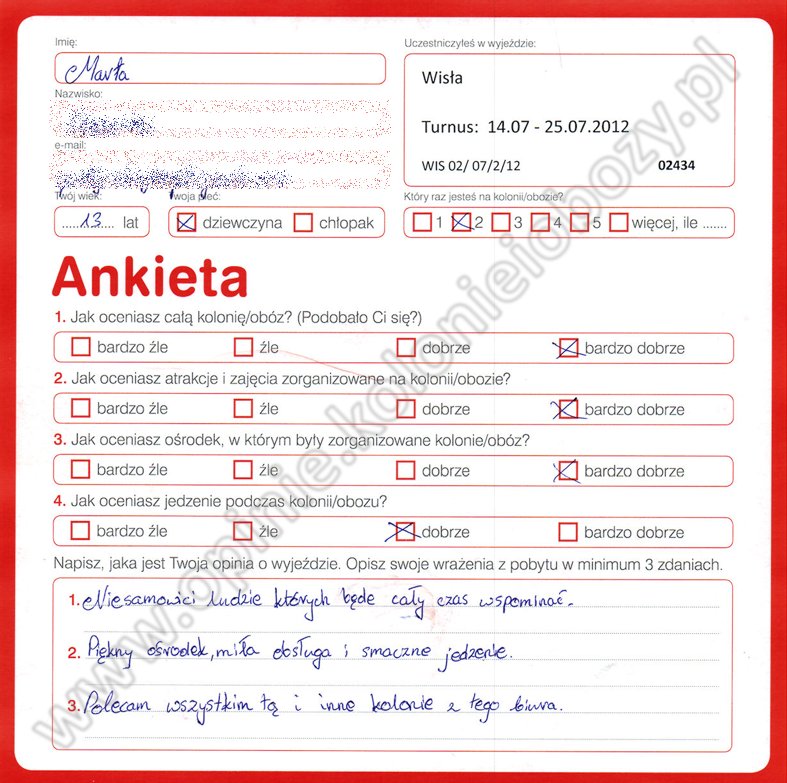 Imię:
Marta
Nazwisko:
e-mail:
Twój wiek:
13 lat
Twoja płeć:
dziewczyna chłopak
Uczestniczyłeś w wyjeździe:
Wisła
Turnus: 14.07 - 25.07.2012
WIS 02/ 07/2/12 02434
Który raz jesteś na kolonii/obozie?
1 2 3 4 5 więcej, ile .......
Ankieta
1. Jak oceniasz całą kolonię/obóz? (Podobało Ci się?)
bardzo źle źle dobrze bardzo dobrze
2. Jak oceniasz atrakcje i zajęcia zorganizowane na kolonii/obozie?
bardzo źle źle dobrze bardzo dobrze
3. Jak oceniasz ośrodek, w którym były zorganizowane kolonie/obóz?
bardzo źle źle dobrze bardzo dobrze
4. Jak oceniasz jedzenie podczas kolonii/obozu?
bardzo źle źle dobrze bardzo dobrze
Napisz, jaka jest Twoja opinia o wyjeździe. Opisz swoje wrażenia z pobytu w minimum 3 zdaniach.
1. Niesamowici ludzie których będe cały czas wspominać.
2. Piękny ośrodek, miła obsługa i smaczne jedzenie.
3. Polecam wszystkim tą i inne kolonie z tego biura.
www.opinie.kolonieiobozy.pl